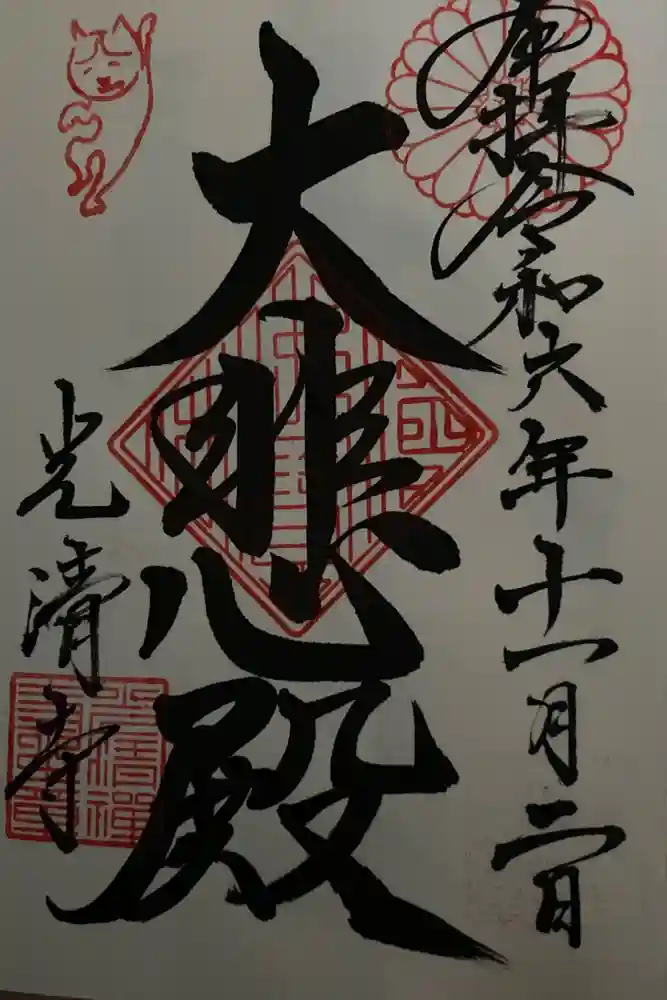 奉拝令和六年十一月二日
大悲殿
光清寺